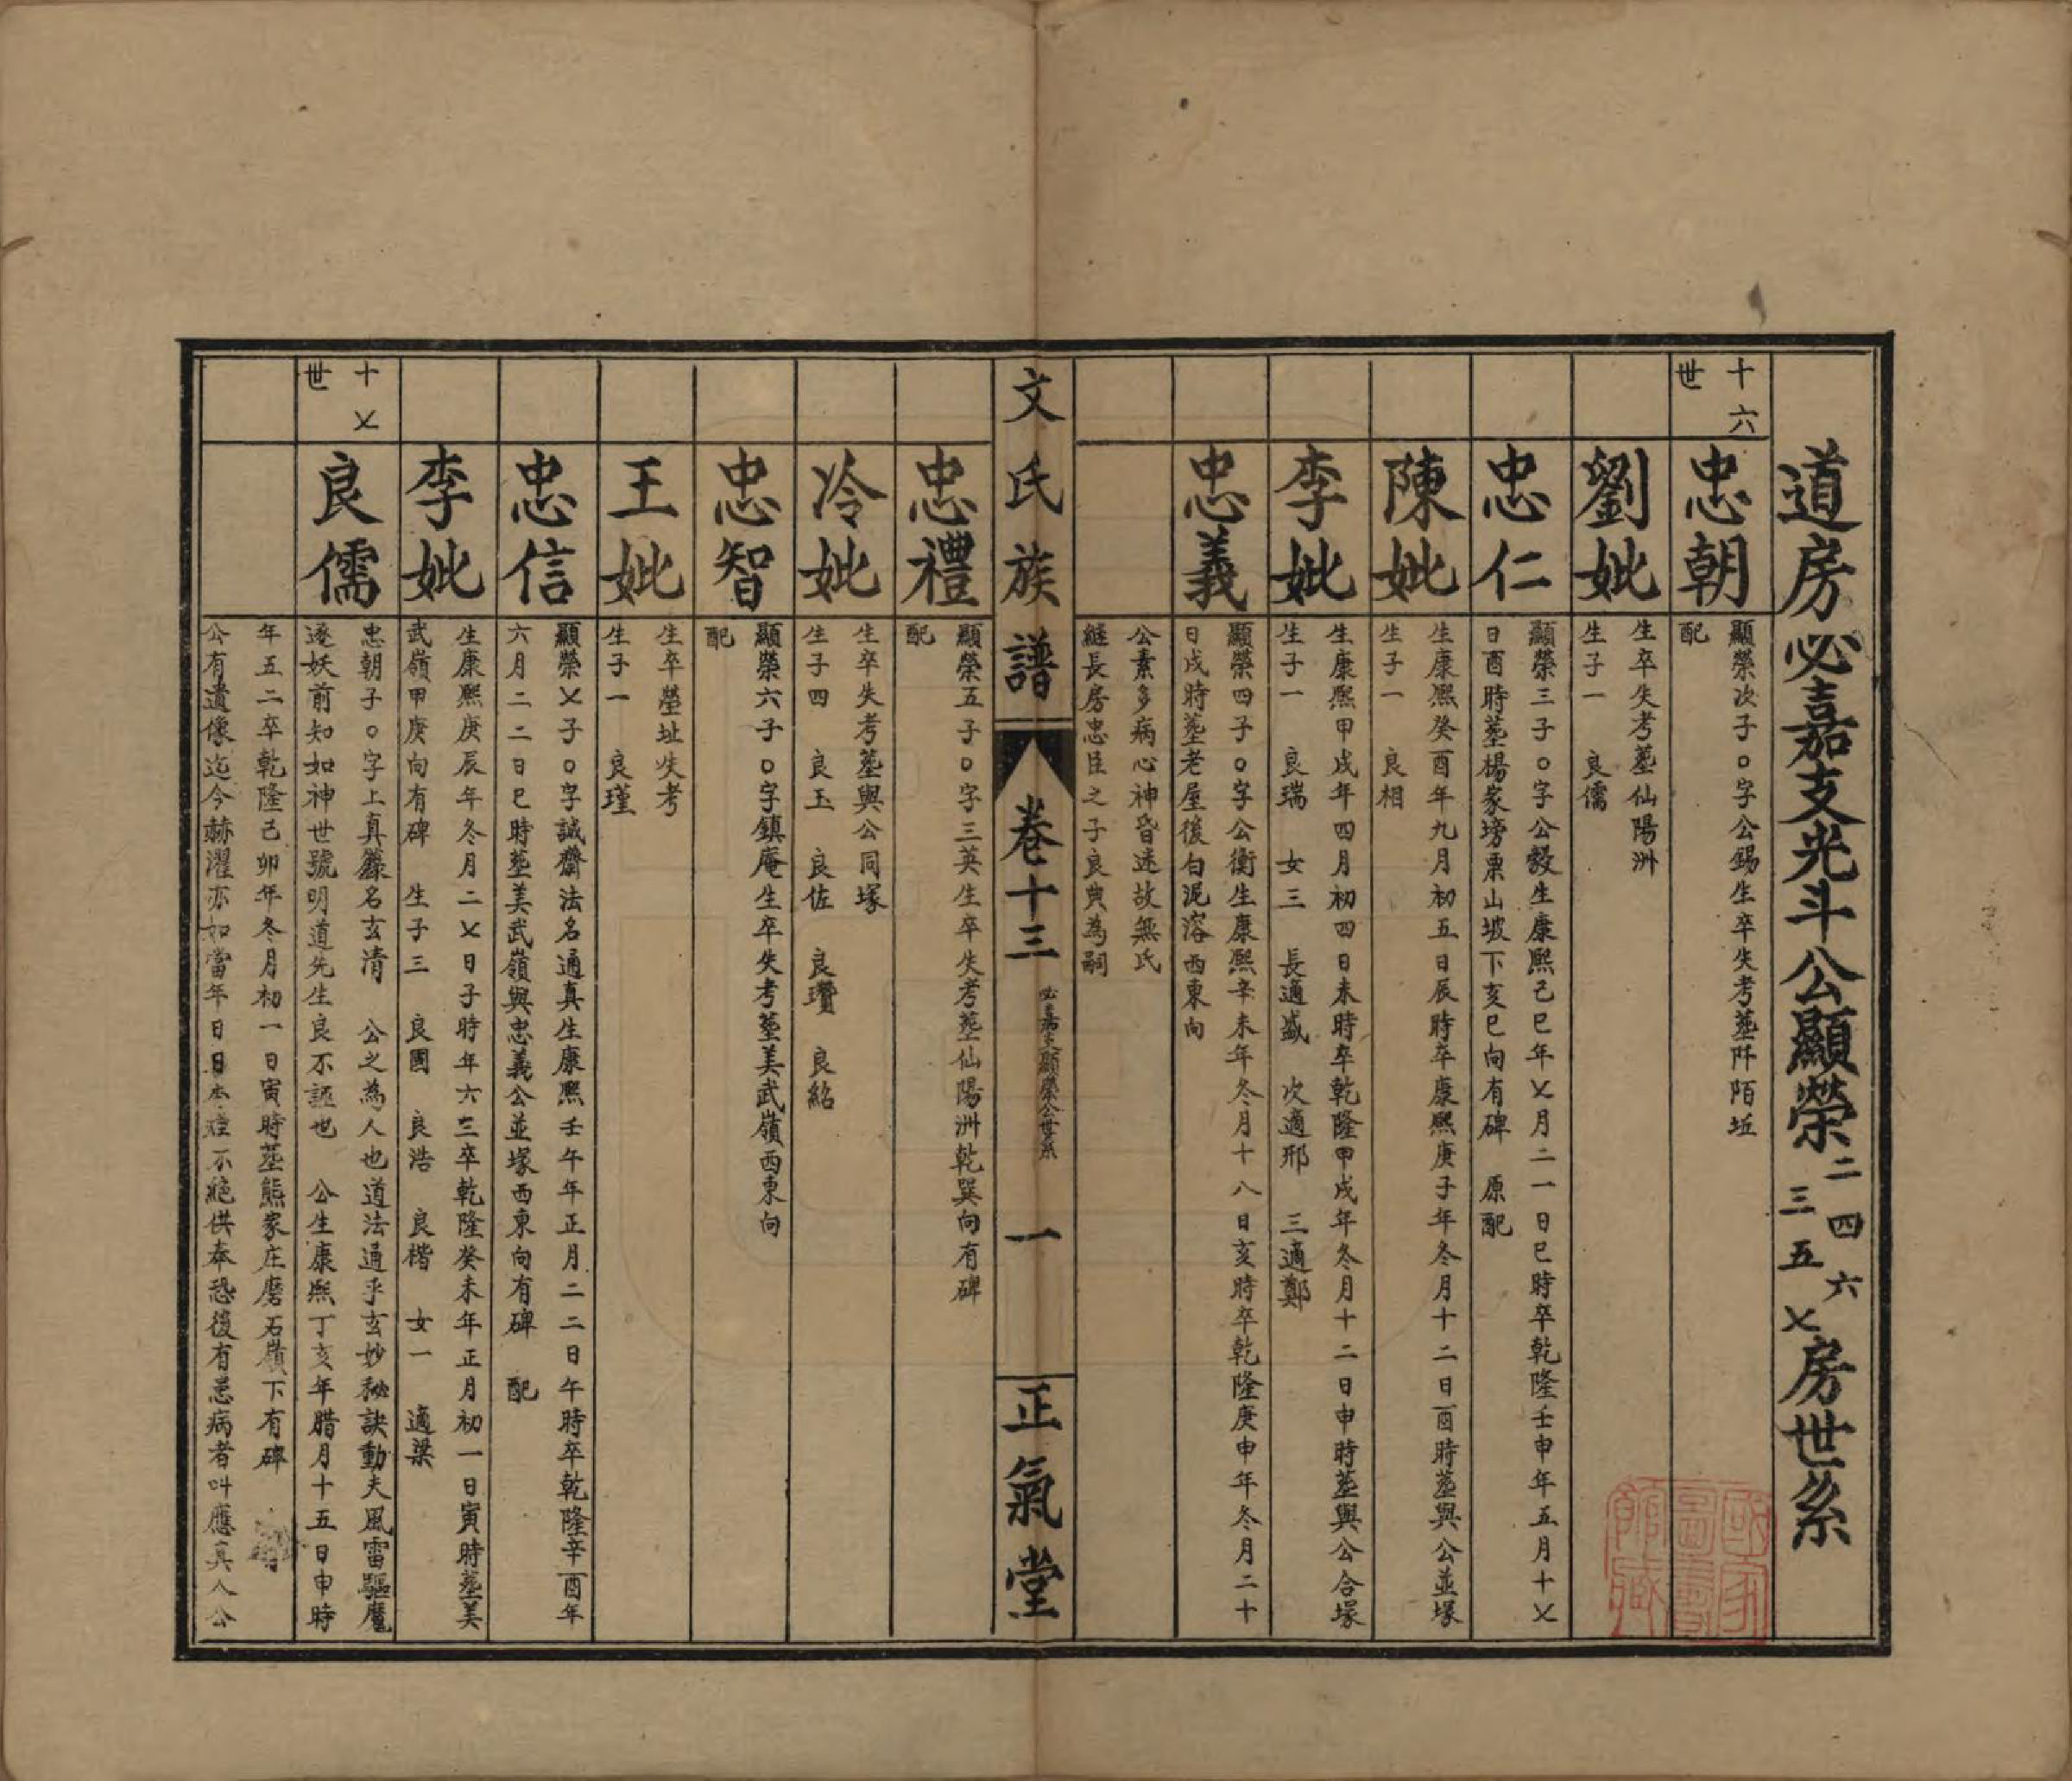 道房必嘉支光斗公顯榮二三四五六七房世系
十六世
忠朝
顯榮次子○字公錫生卒失考葬阡陌坵
配
劉妣
生卒失考葬仙陽洲
生子一 良儒
忠仁
顯榮三子○字公毅生康熙己巳年七月二一日巳時卒乾隆壬申年五月十七
日酉時葬楊家塝栗山坡下亥巳向有碑 原配
陳妣
生康熙癸酉年九月初五日辰時卒康熙庚子年冬月十二日酉時葬與公並塚
生子一 良相
李妣
生康熙甲戌年四月初四日未時卒乾隆甲戌年冬月十二日申時葬與公合塚
生子一 良瑞 女三 長適盛 次適邢 三適鄭
忠義
顯榮四子○字公衡生康熙辛未年冬月十八日亥時卒乾隆庚申年冬月二十
日戌時葬老屋後白泥溶西東向
公素多病心神昏迷故無氏
繼長房忠臣之子良典為嗣
文氏族譜
卷十三
必嘉支顯榮公世系
一
正氣堂
忠禮
顯榮五子○字三英生卒失考葬仙陽洲乾巽向有碑
配
冷妣
生卒失考葬與公同塚
生子四 良玉 良佐 良瓚 良紹
忠智
顯榮六子○字鎮庵生卒失考葬美武嶺西東向
配
王妣
生卒塋址失考
生子一 良瑾
忠信
顯榮七子○字誠齋法名通真生康熙壬午年正月二二日午時卒乾隆辛酉年
六月二二日巳時葬美武嶺與忠義公並塚西東向有碑 配
李妣
生康熙庚辰年冬月二七日子時年六三卒乾隆癸未年正月初一日寅時葬美
武嶺甲庚向有碑 生子三 良國 良浩 良楷 女一 適梁
十七世
良儒
忠朝子○字上真籙名玄清 公之為人也道法通乎玄妙秘訣動夫風雷驅魔
逐妖前知如神世號明道先生良不誣也 公生康熙丁亥年腊月十五日申時
年五二卒乾隆己卯年冬月初一日寅時葬熊家庄磨石嶺下有碑
公有遺像迄今赫濯亦如當年日日不絕供奉恐後有患病者叫應真人公
國家圖書館藏